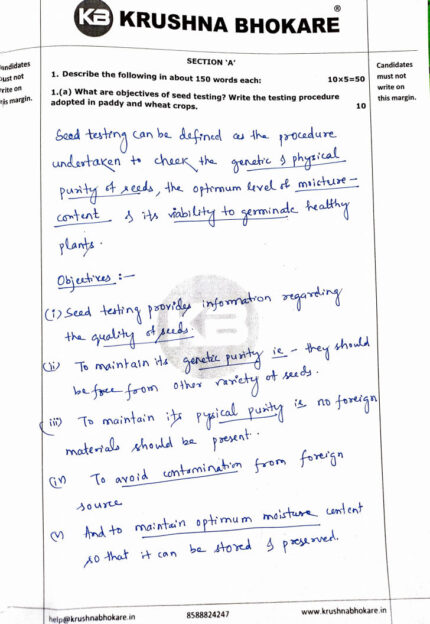 KB KRUSHNA BHOKARE ®
SECTION 'A'
1. Describe the following in about 150 words each: 10×5=50
1.(a) What are objectives of seed testing? Write the testing procedure
adopted in paddy and wheat crops. 10
andidates
must not
write on
this margin.
Candidates
must not
write on
this margin.
Seed testing can be defined as the procedure
undertaken to check the genetic & physical
purity of seeds, the optimum level of moisture-
content & its viability to germinate healthy
plants.
Objectives :-
(i) Seed testing provides information regarding
the quality of seeds.
(ii) To maintain its genetic purity ie - they should
be free from other variety of seeds.
(iii) To maintain its pysical purity ie no foreign
materials should be present..
(iv) To avoid contamination from foreign
source
(v) And to maintain optimum moisture content
so that it can be stored & preserved.
KB
help@krushnabhokare.in 8588824247 www.krushnabhokare.in